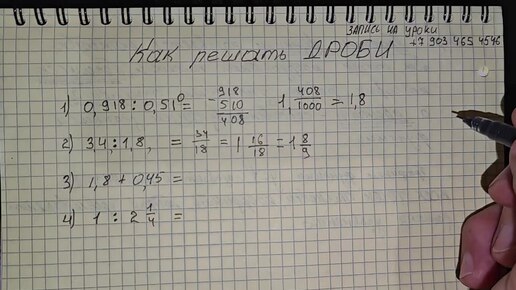 ЗАПИСЬ НА УРОКИ
+7 903 465 4546
Как решать ДРОБИ
1) 0,918 : 0,51⁰ = -918/510/408 1, 408/1000 = 1,8
2) 3,4, : 1,8, = 34/18 = 1 16/18 = 1 8/9
3) 1,8 + 0,45 =
4) 1 : 2 1/4 =